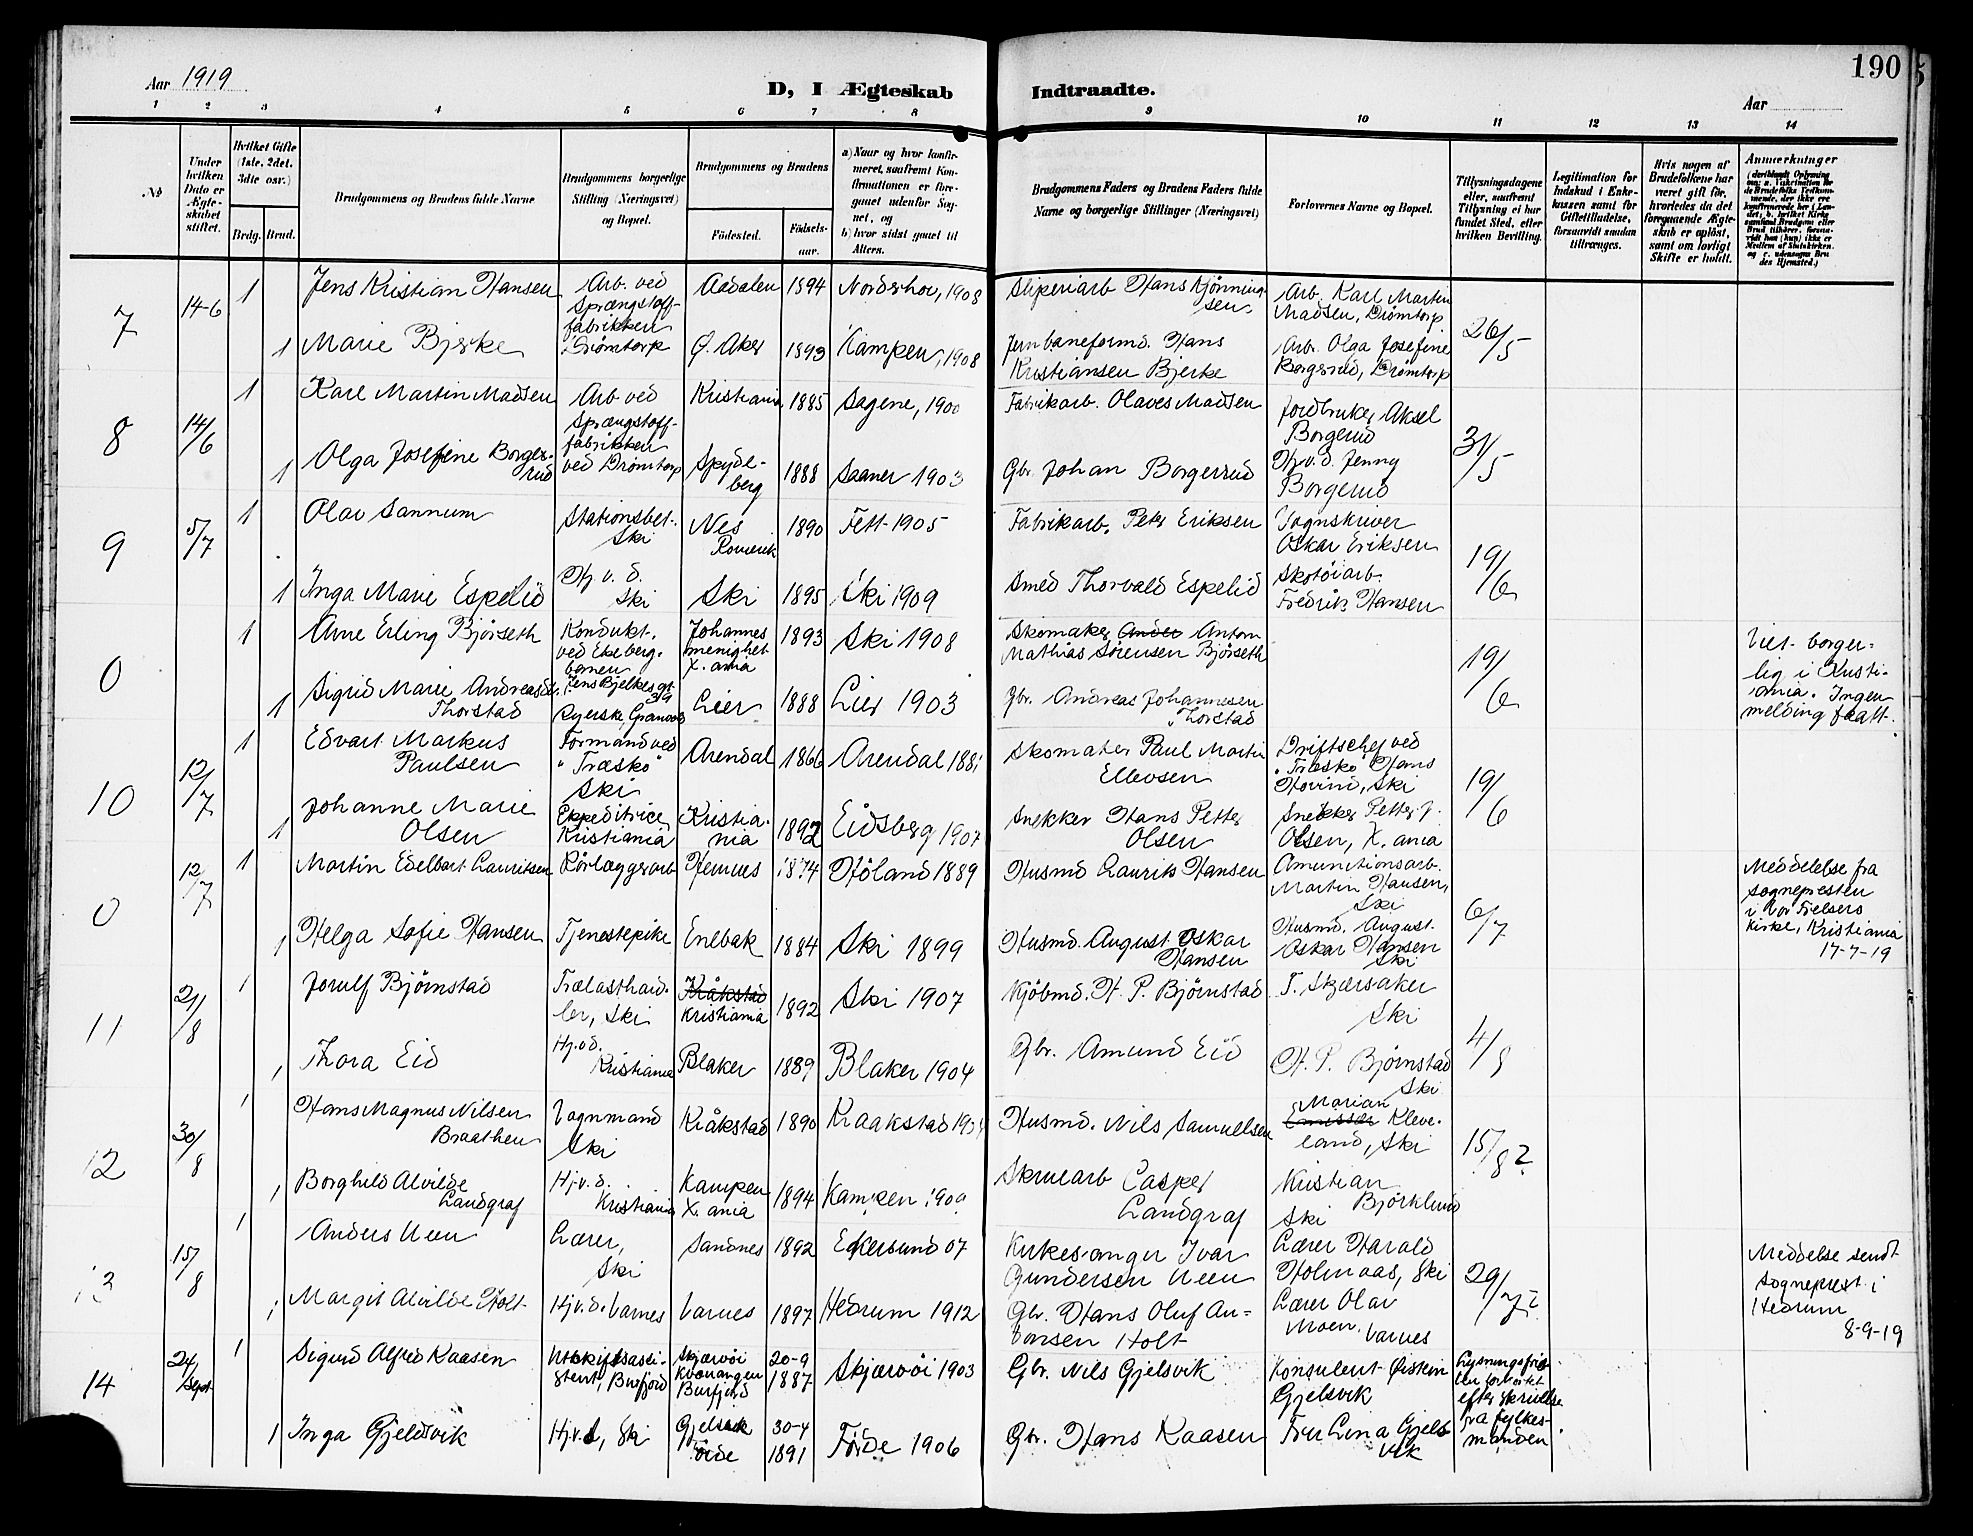 190
Aar 1919
D, I Ægteskab Indtraadte.
Aar
1 2 3 4 5 6 7 8 9 10 11 12 13 14
№
Under hvilken Dato er Ægteskabet stiftet.
Hvilket Gifte (1ste, 2det, 3die osv.)
Brdg. Brud.
Brudgommens og Brudens fulde Navne
Brudgommens borgerlige Stilling (Næringsvei) og Bopæl.
Brudgommens og Brudens
Fødested. Fødselsaar.
a) Naar og hvor konfirmeret, saafremt Konfirmationen er foregaaet udenfor Sognet, og
b) hvor sidst gaaet til Alters.
Brudgommens Faders og Brudens Faders fulde Navne og borgerlige Stillinger (Næringsvei)
Forlovernes Navne og Bopæl.
Tillysningsdagene eller, saafremt Tillysning ei har fundet Sted, efter hvilken Bevilling.
Legitimation for Indskud i Enkekassen samt for Giftetilladelse, forsaavidt saadan tiltrænges.
Hvis nogen af Brudefolkene har været gift før, hvorledes da det foregaaende Ægteskab er opløst, samt om lovligt Skifte er holdt.
Anmerkninger
7
14-6
1
Jens Kristian Hansen
Arb. ved Sprængstoff-fabrikken Drömtorp
Aadalen
1894
Norderhov, 1908
Sliperiarb Hans Kjönningsen
Arb. Karl Martin Madsen, Drömtorp
26/5
1
Marie Bjerke
Ø. Aker
1893
Kampen, 1908
Jernbaneformd. Hans Kristiansen Bjerke
Arb. Olga Josefine Borgersrud, Drömtorp
8
14/6
1
Karl Martin Madsen
Arb ved Sprængstoff-fabrikken ved Drömtorp
Kristiania
1885
Sagene, 1900
Fabrikarb. Olaves Madsen
Jordbruker Aksel Borgerud
31/5
1
Olga Josefine Borgersrud
Spydeberg
1888
Saaner 1903
Gbr. Johan Borgersrud
Hj.v.d. Jenny Borgerud
9
5/7
1
Olav Sannum
Stationsbet. Ski
Nes Romerik
1890
Fett 1905
Fabrikarb. Peter Eriksen
Vognskriver Oskar Eriksen
19/6
1
Inga Marie Espelid
Hj. v. d. Ski
Ski
1895
Ski 1909
Smed Thorvald Espelid
Skotöiarb. Fredrik Hansen
0
1
Arne Erling Björseth
Kondukt. ved Ekebergbanen Jens Bjelkes gt. 39
Johannes menighet X.ania
1893
Ski 1908
Skomaker Ander Anton Mathias Sörensen Björseth
19/6
Viet borgerlig i Kristiania. Ingen melding faatt.
1
Sigrid Marie Andreasdt. Thorstad
Syerske,
Lier
1888
Lier 1903
Gbr. Andreas Johannesen Thorstad
10
12/7
1
Edvart Markus Paulsen
Formand ved "Træsko" Ski
Arendal
1866
Arendal 1881
Skomaker Paul Martin Ellevsen
Driftschef ved "Træsko" Hans Hovind, Ski
19/6
1
Johanne Marie Olsen
Ekspeditrice Kristiania
Kristiania
1892
Eidsberg 1907
Snekker Hans Petter Olsen
Snekker Petter J. Olsen, X.ania
0
12/7
1
Martin Edelbart Lauritsen
Rörlæggerarb
Hemnes
1874
Höland 1889
Husmd Laurits Hansen
Amunitionsarb. Martin Hansen, Ski
6/7
Meddelelse fra sognepresten i Vor Frelsers kirke, Kristiania 17-7-19
1
Helga Sofie Hansen
Tjenestepike
Enebak
1884
Ski 1899
Husmd. August Oskar Hansen
Husmd. August Oskar Hansen Ski
11
21/8
1
Jorulf Björnstad
Trælasthandler, Ski
Kråkstad Kristiania
1892
Ski 1907
Kjöbmd. H. P. Björnstad
T. Skjærsaker Ski
4/8
1
Thora Eid
Hj.v.d. Kristiania
Blaker
1889
Blaker 1904
Gbr. Amund Eid
H. P. Björnstad Ski
12
30/8
1
Hans Magnus Nilsen Braathen
Vognmand Ski
Kråkstad
1890
Kraakstad
Husmd. Nils Samuelsen
Marian Emissær Kleveland, Ski
15/8?
1
Borghild Alvilde Landgraf
Hj.v.d. Kristiania
Kampen X.ania
1894
Kampen 190
Skruearb Casper Landgraf
Kristian Björklund Ski
13
15/8
1
Anders Ueen
Lærer, Ski
Sandnes
1892
Ekersund 07
Kirkesanger Ivar Gundersen Ueen
Lærer Harald Holmaas, Ski
29/7?
Meddelse sendt sogneprest i Hedrum 8-9-19
1
Margit Alvilde Holt
Hj.v.d. Varnes
Varnes
1897
Hedrum 1912
Gbr. Hans Oluf Antonsen Holt
Lærer Olav Moen. Varnes
14
24/Sept
1
Sigurd Alfred Kaasen
Utskiftsassistent, Burfjord
Skjærvöi Kvænangen Burfjord
20-9 1887
Skjærvöi 1903
Gbr. Nils Gjelsvik
Konsulent Øistein Gjelsvik
Lysningsfristen forkortet efter skrivelse fra fylkesmanden
1
Inga Gjelsvik
Hj.v.d, Ski
Gjelsvik Förde
30-4 1891
Förde 1906
Gbr. Hans Kaasen
Fru Lina Gjelsvik